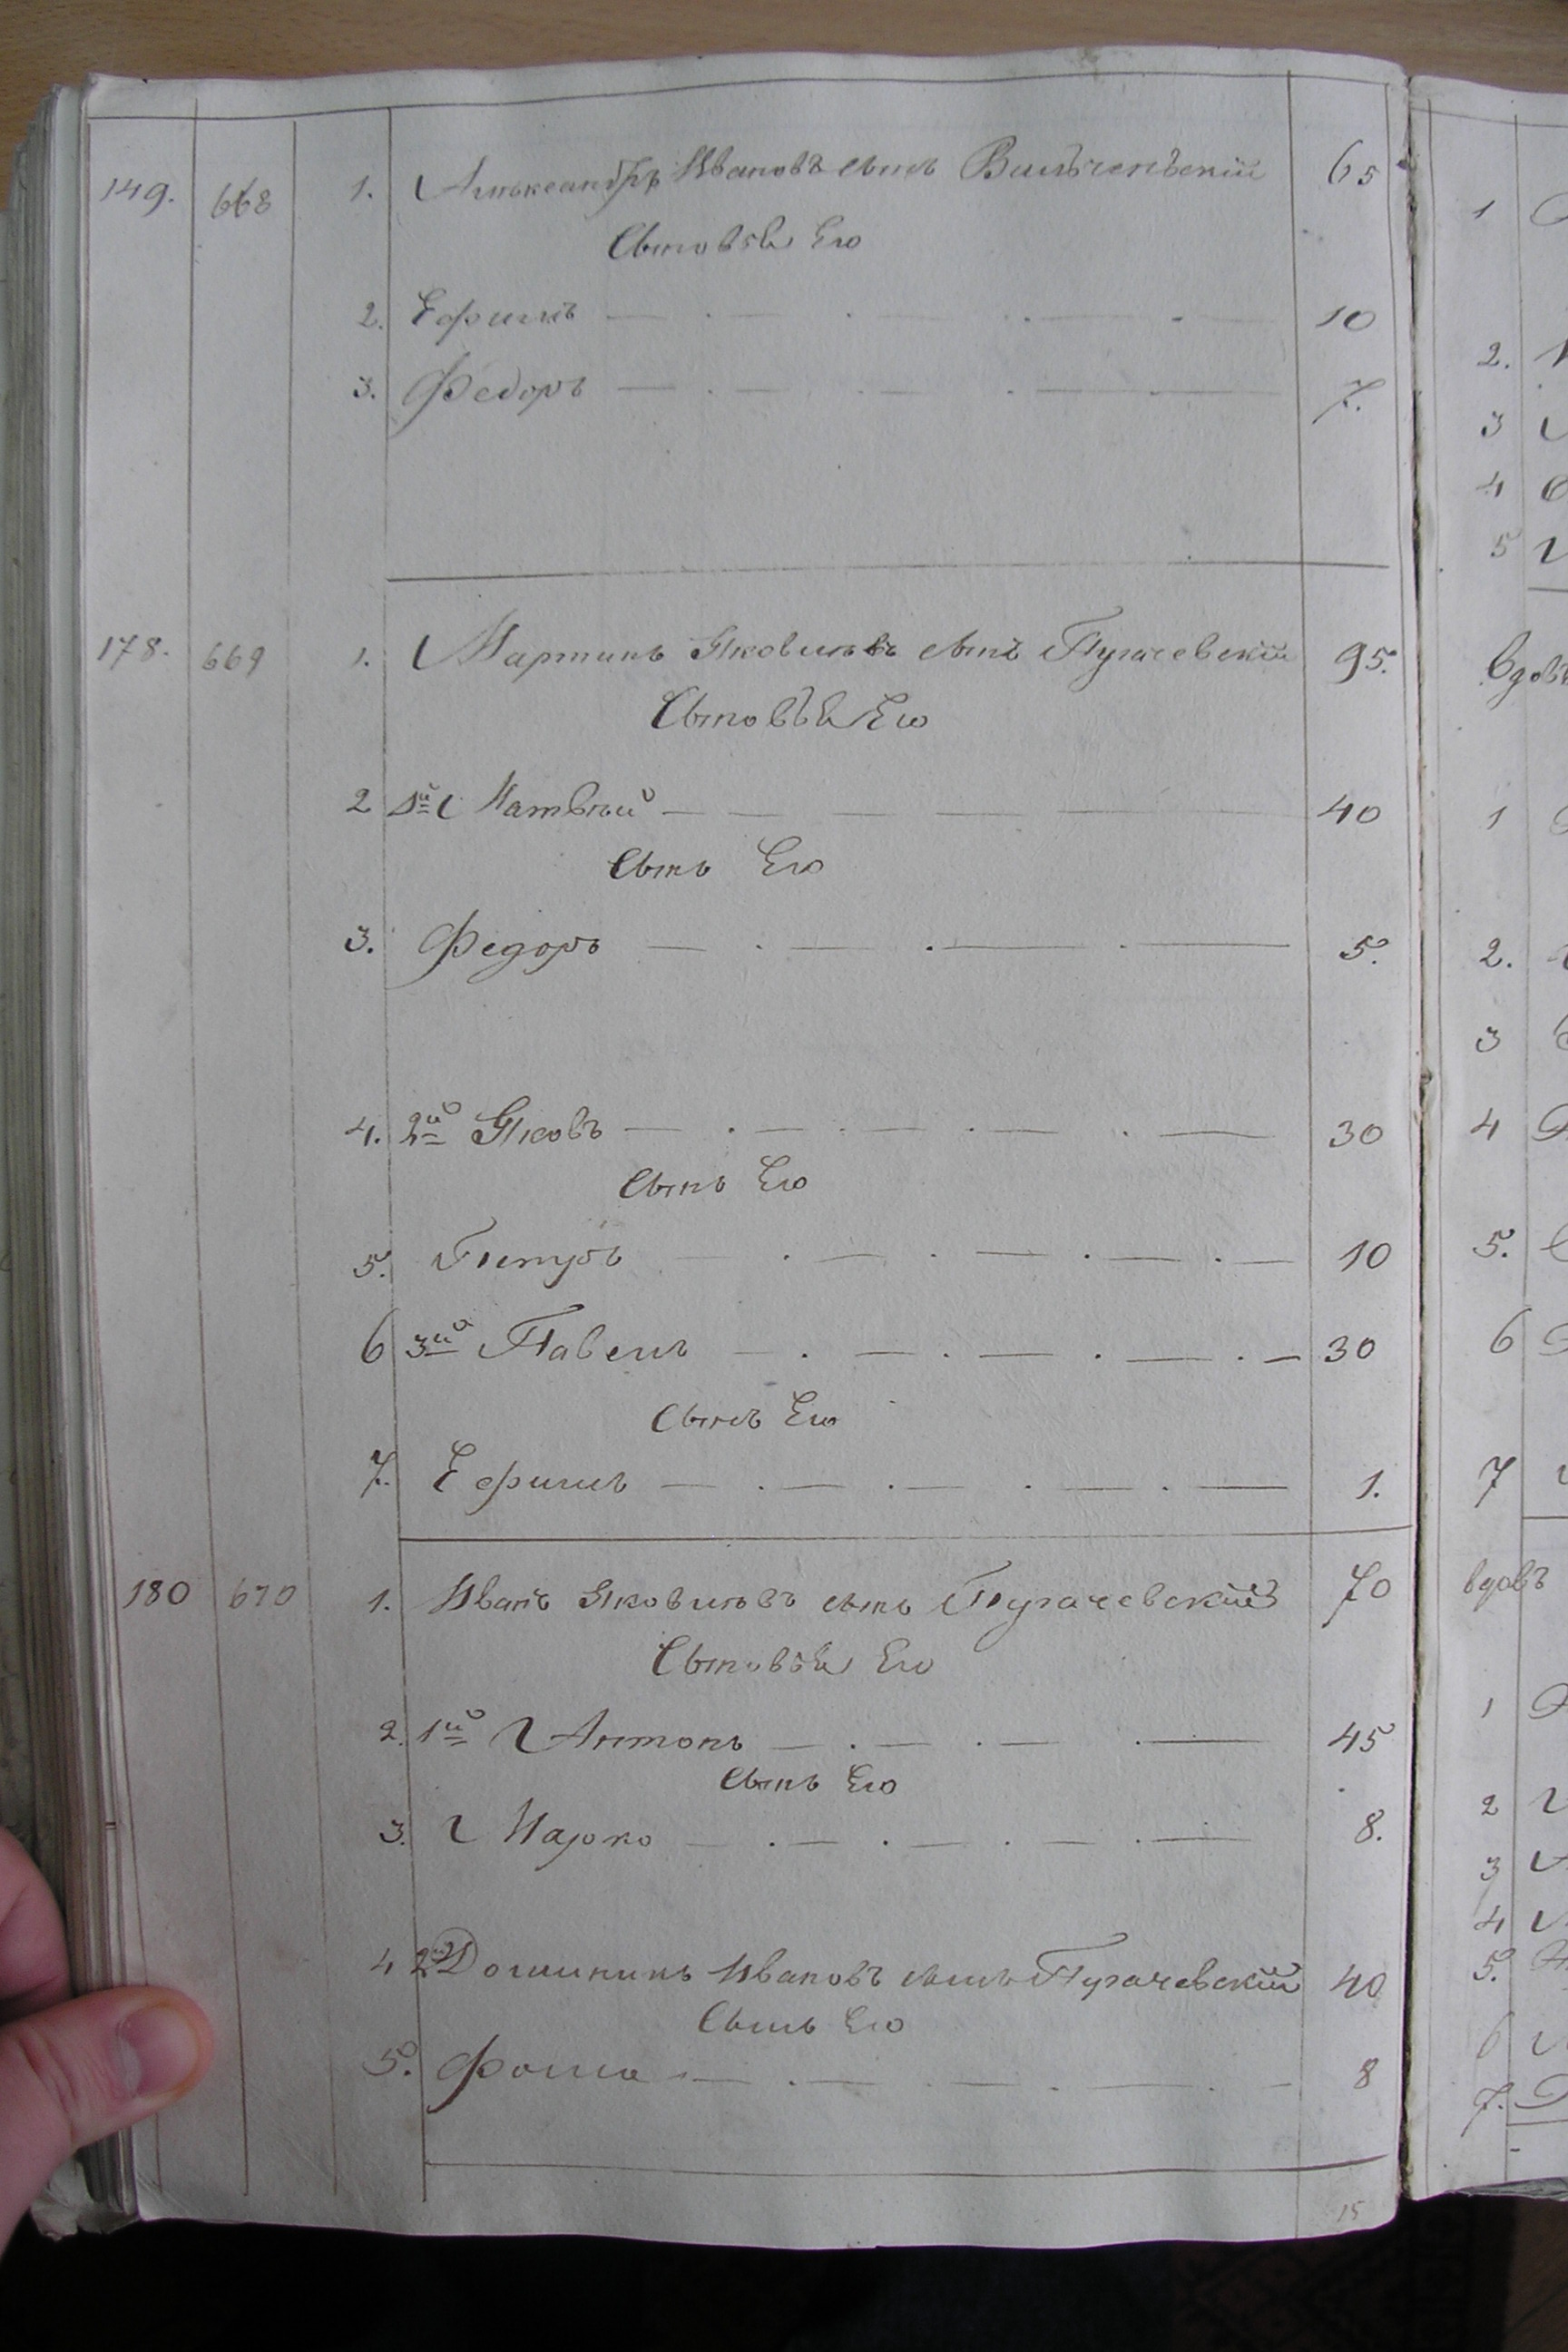 149. 668 1. Алъксандръ Ивановъ сынъ Вильченъскій 65
Сыновья Его
2. Ефимъ 10
3. Федоръ 7.
178. 669 1. Мартинъ Яковлевъ сынъ Пугачевскій 95.
Сыновья Его
2 1й Матвъй 40
Сынъ Его
3. Федоръ 5.
4. 2й Яковъ 30
Сынъ Его
5. Петръ 10
6 3й Павелъ 30
Сынъ Его
7. Ефимъ 1.
180 670 1. Иванъ Яковлевъ сынъ Пугачевскій 70
Сыновья Его
2. 1й Антонъ 45
Сынъ Его
3. Марко 8.
4 2й Доминикъ Ивановъ сынъ Пугачевскій 40
Сынъ Его
5. Фома 8
15
1
2.
3
4
5
вдовъ
1
2.
3
4
5.
6
7
вдовъ
1
2
3
4
5.
6
7.